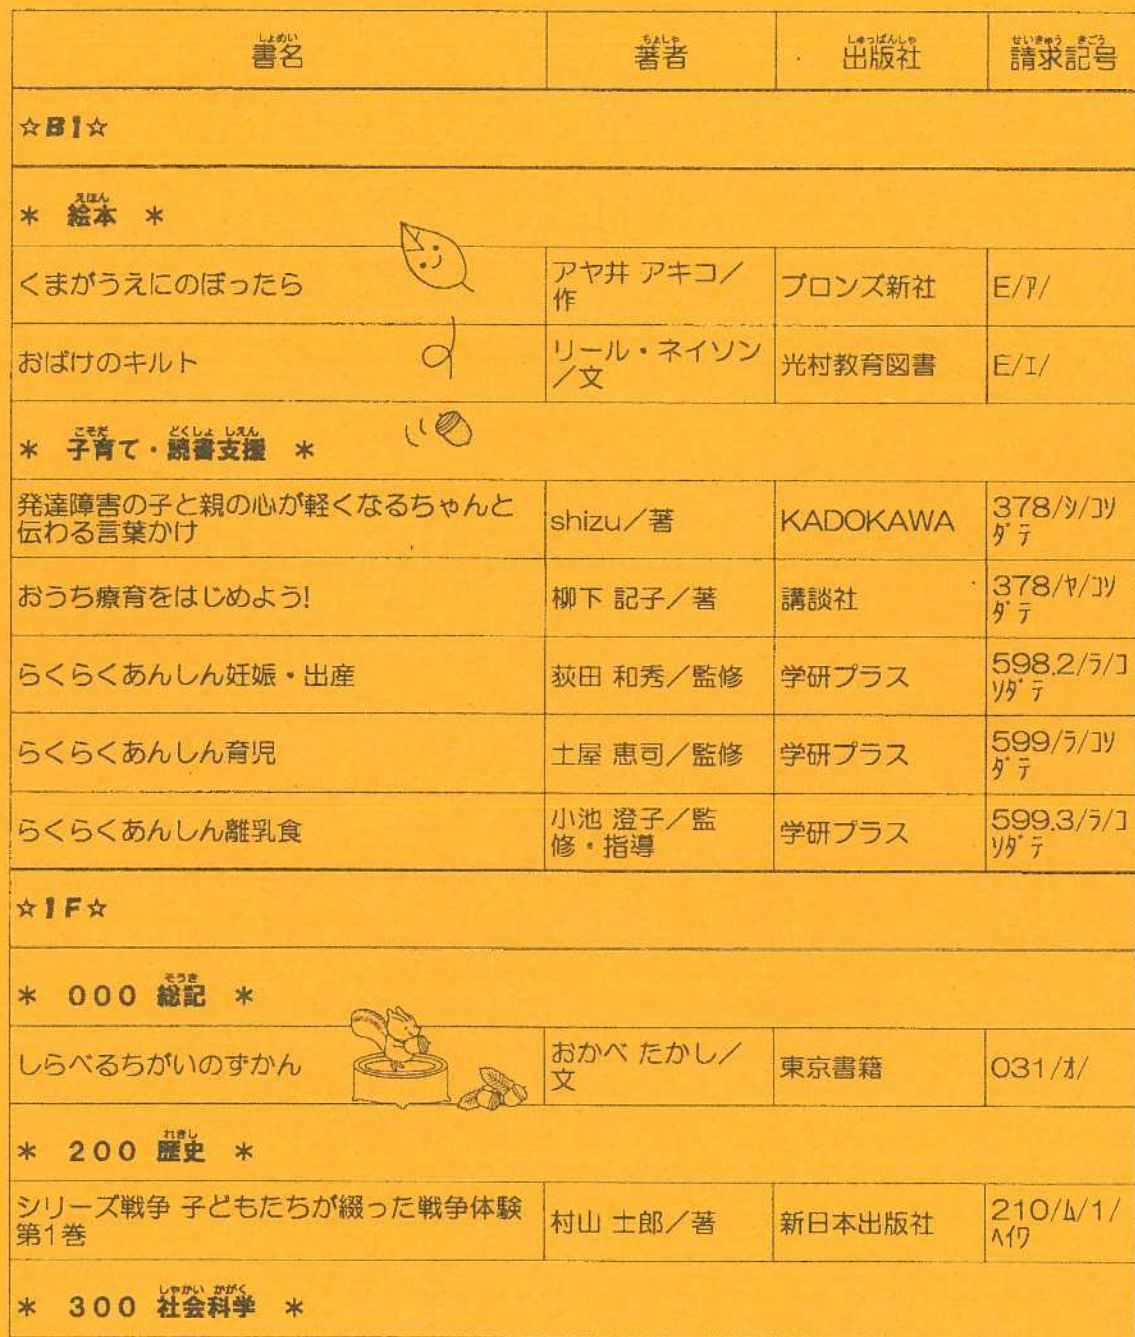 書名 著者 出版社 請求記号
しょめい ちょしゃ しゅっぱんしゃ せいきゅう きごう
☆B1☆
えほん
* 絵本 *
くまがうえにのぼったら アヤ井 アキコ/作 ブロンズ新社 E/ｱ/
おばけのキルト リール・ネイソン/文 光村教育図書 E/ｴ/
こそだ どくしょ しえん
* 子育て・読書支援 *
発達障害の子と親の心が軽くなるちゃんと伝わる言葉かけ shizu/著 KADOKAWA 378/ｼ/ｺｿﾀﾞﾃ
おうち療育をはじめよう! 柳下 記子/著 講談社 378/ﾔ/ｺｿﾀﾞﾃ
らくらくあんしん妊娠・出産 荻田 和秀/監修 学研プラス 598.2/ﾗ/ｺｿﾀﾞﾃ
らくらくあんしん育児 土屋 恵司/監修 学研プラス 599/ﾗ/ｺｿﾀﾞﾃ
らくらくあんしん離乳食 小池 澄子/監修・指導 学研プラス 599.3/ﾗ/ｺｿﾀﾞﾃ
☆1F☆
そうき
* 000 総記 *
しらべるちがいのずかん おかべ たかし/文 東京書籍 031/ｵ/
れきし
* 200 歴史 *
シリーズ戦争 子どもたちが綴った戦争体験 第1巻 村山 士郎/著 新日本出版社 210/ﾑ/1/ﾍｲﾜ
しゃかい かがく
* 300 社会科学 *